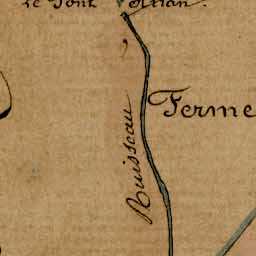 le Pont
Ferme
Ruisseau